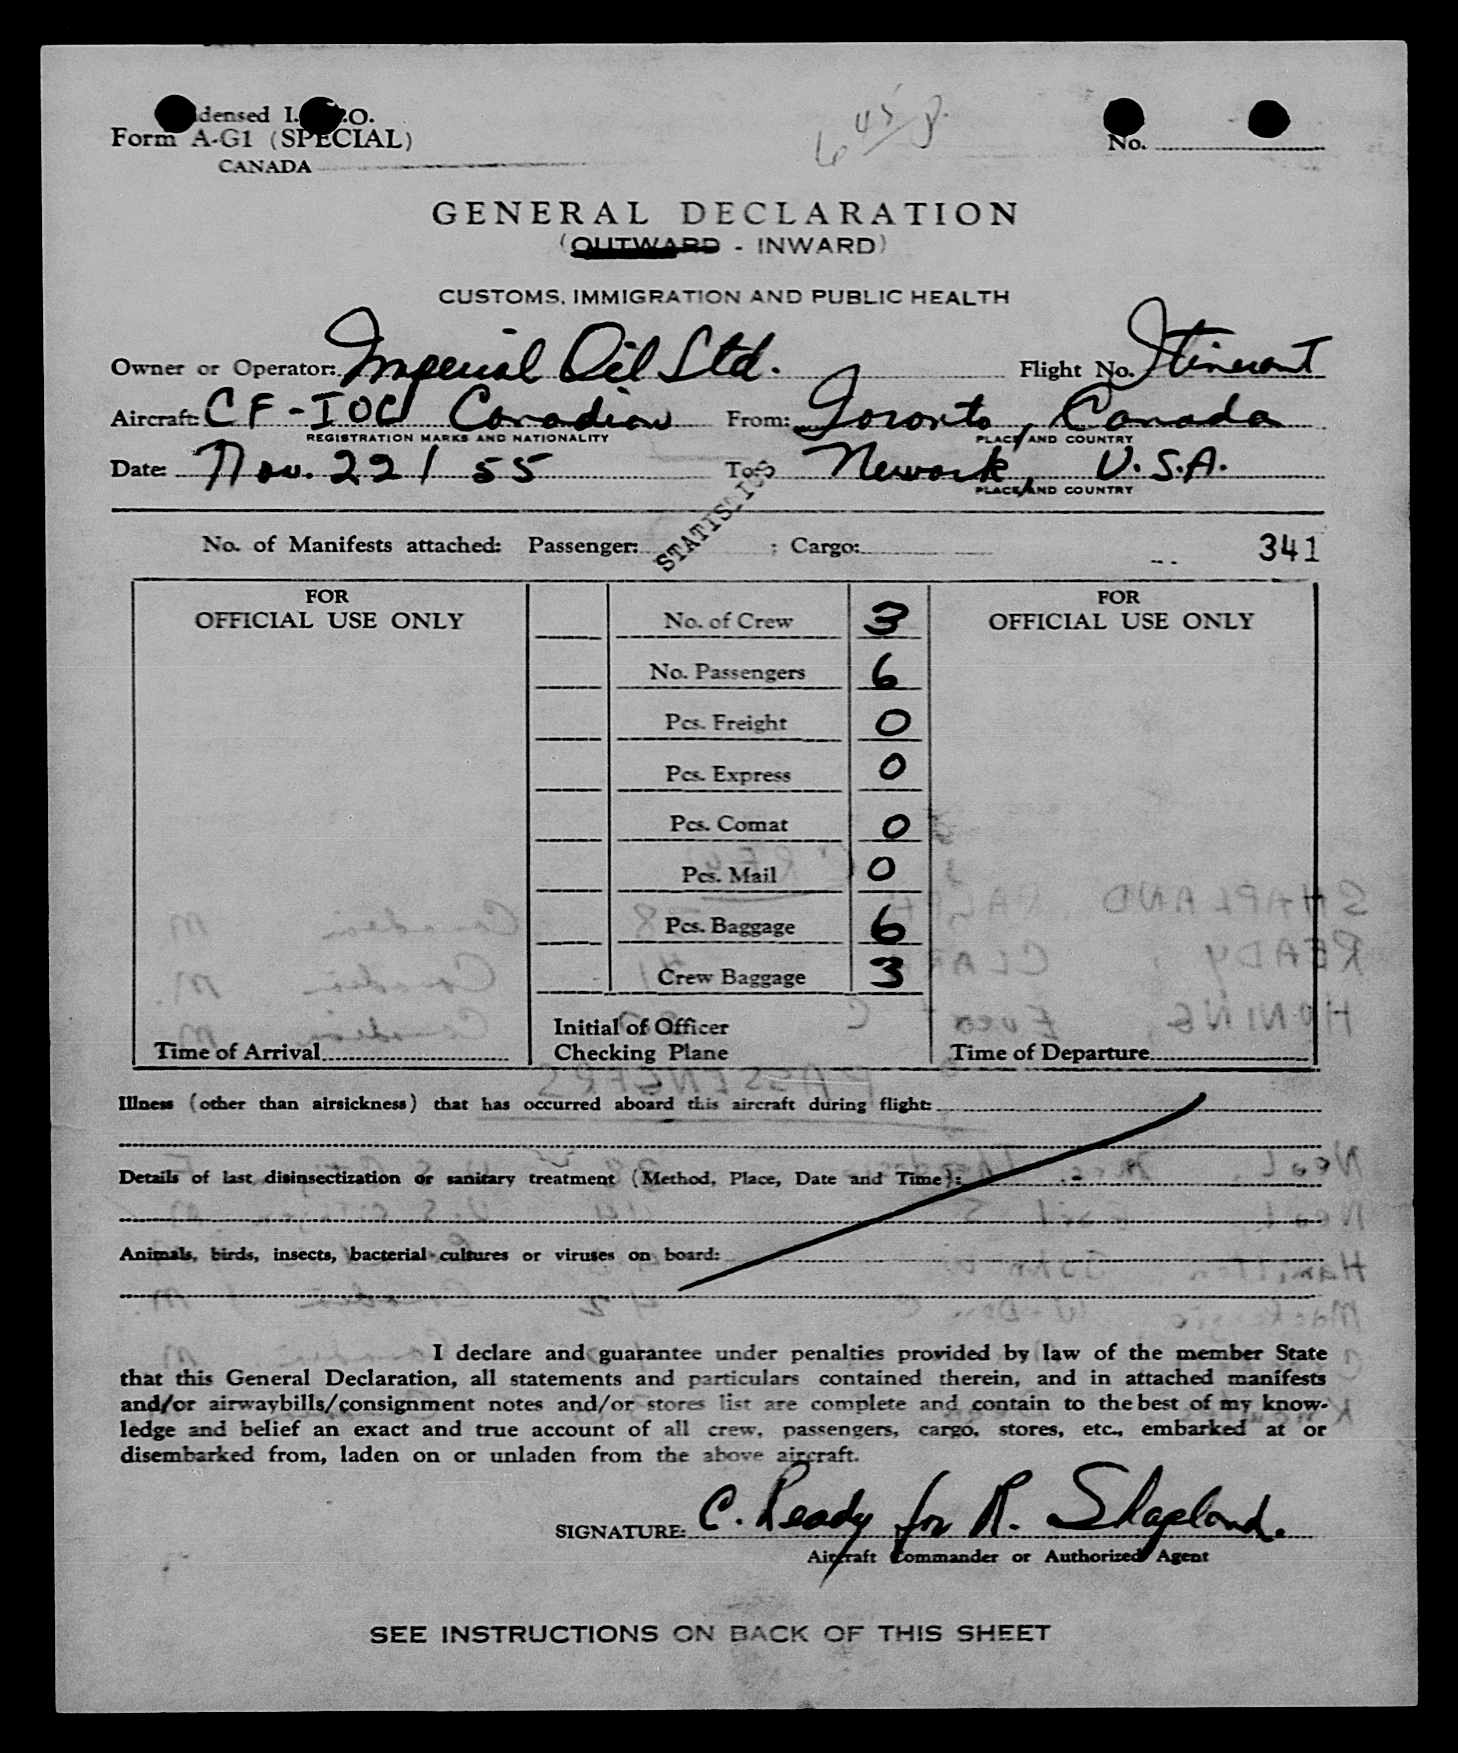 densed I. .O.
Form A-G1 (SPECIAL)
CANADA
6 45 p.
No.
GENERAL DECLARATION
(OUTWARD - INWARD)
CUSTOMS, IMMIGRATION AND PUBLIC HEALTH
Owner or Operator: Imperial Oil Ltd. Flight No. Itinerant
Aircraft: CF-IOC Canadian From: Toronto, Canada
REGISTRATION MARKS AND NATIONALITY PLACE AND COUNTRY
Date: Nov. 22/55 To: Newark, U.S.A.
PLACE AND COUNTRY
STATISTICS
No. of Manifests attached: Passenger: ; Cargo: 341
FOR
OFFICIAL USE ONLY
No. of Crew 3
No. Passengers 6
Pcs. Freight 0
Pcs. Express 0
Pcs. Comat 0
Pcs. Mail 0
Pcs. Baggage 6
Crew Baggage 3
FOR
OFFICIAL USE ONLY
Time of Arrival
Initial of Officer
Checking Plane
Time of Departure
Illness (other than airsickness) that has occurred aboard this aircraft during flight:
Details of last disinsectization or sanitary treatment (Method, Place, Date and Time):
Animals, birds, insects, bacterial cultures or viruses on board:
I declare and guarantee under penalties provided by law of the member State
that this General Declaration, all statements and particulars contained therein, and in attached manifests
and/or airwaybills/consignment notes and/or stores list are complete and contain to the best of my know-
ledge and belief an exact and true account of all crew, passengers, cargo, stores, etc., embarked at or
disembarked from, laden on or unladen from the above aircraft.
SIGNATURE: C. Ready for R. Shapland.
Aircraft Commander or Authorized Agent
SEE INSTRUCTIONS ON BACK OF THIS SHEET